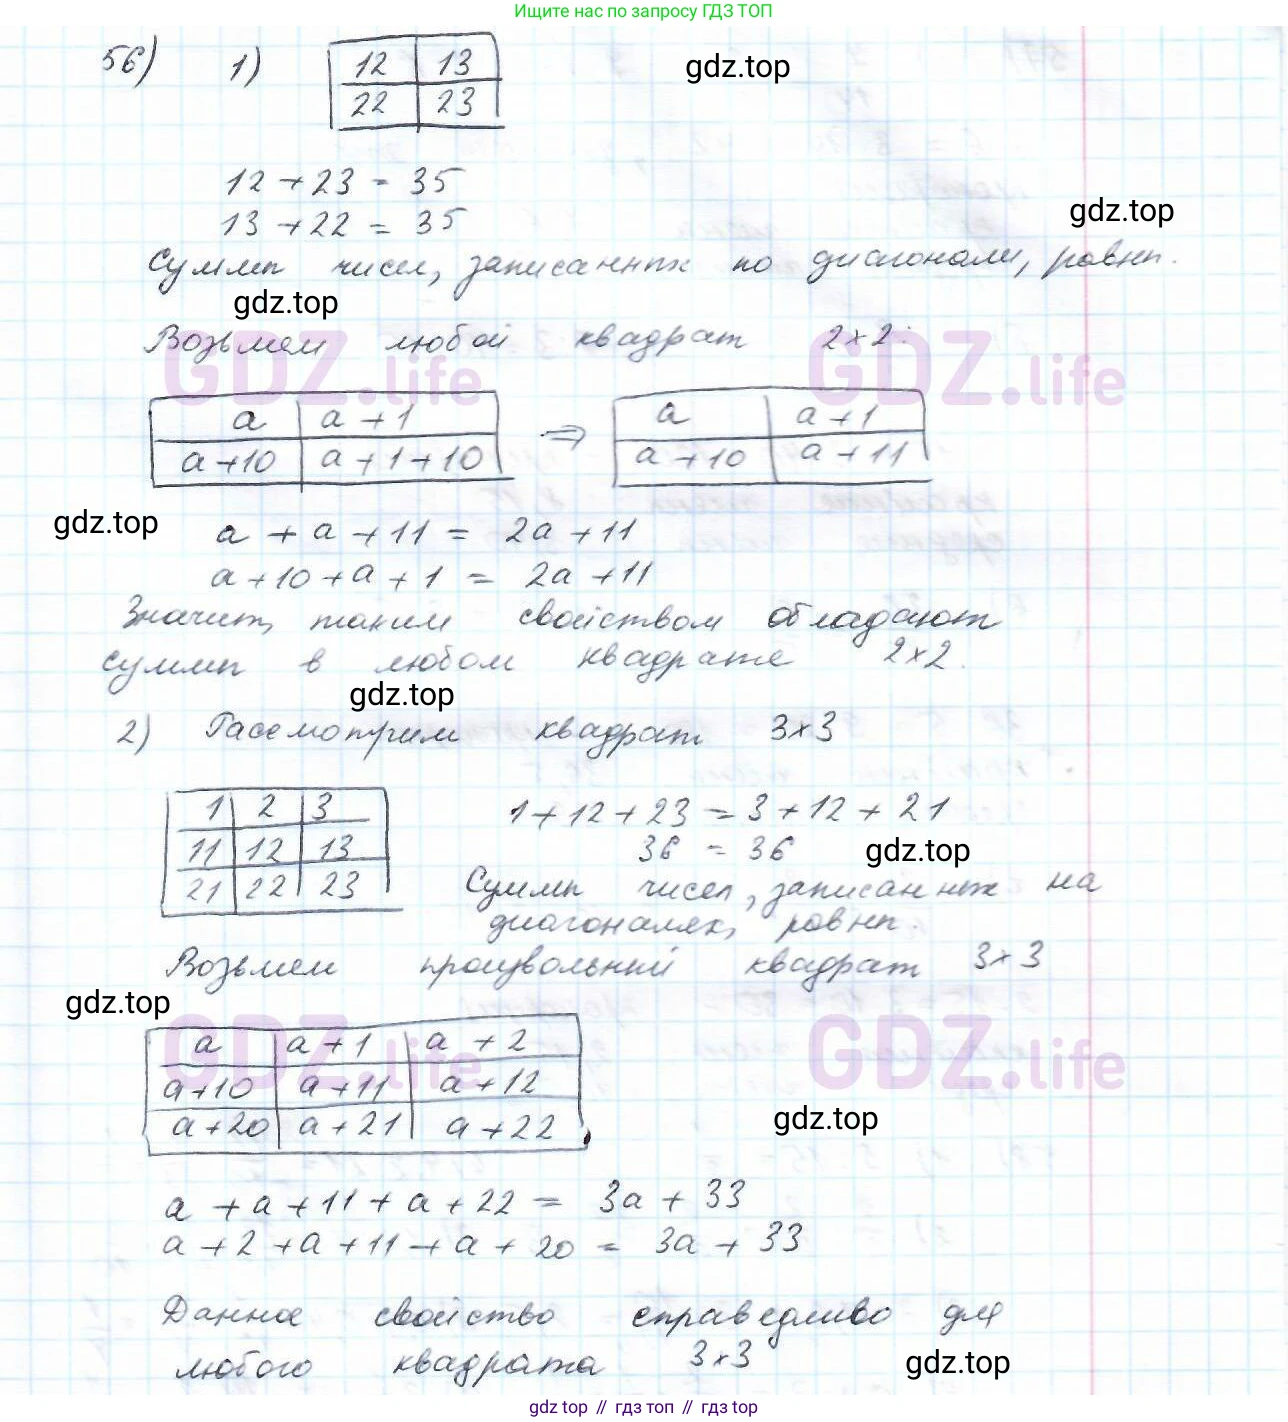 Ищите нас по запросу ГДЗ ТОП
56) 1) 12 13
gdz.top
22 23
12 + 23 = 35
gdz.top
13 + 22 = 35
Суммы чисел, записанных по диагонали, равны.
gdz.top
Возьмем любой квадрат 2×2:
GDZ.life GDZ.life
a a+1 a a+1
a+10 a+1+10 ⇒ a+10 a+11
gdz.top
a + a + 11 = 2a + 11
a+10+a+1 = 2a+11
Значит, таким свойством обладают
суммы в любом квадрате 2×2.
gdz.top
2) Рассмотрим квадрат 3×3
1 2 3
11 12 13
21 22 23
1+12+23 = 3+12+21
36 = 36
gdz.top
Суммы чисел, записанных на
диагоналях, равны.
Возьмем произвольный квадрат 3×3
gdz.top
GDZ.life GDZ.life
a a+1 a+2
a+10 a+11 a+12
a+20 a+21 a+22,
gdz.top
a + a + 11 + a + 22 = 3a + 33
a + 2 + a + 11 + a + 20 = 3a + 33
Данное свойство справедливо для
любого квадрата 3×3
gdz.top
gdz top // гдз топ // гдз top